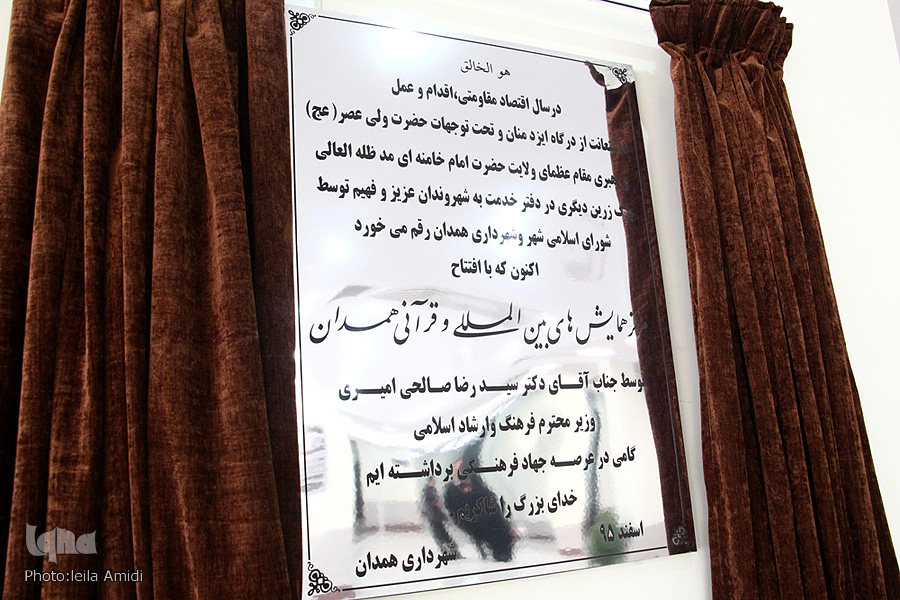 هو الخالق
در سال اقتصاد مقاومتی،اقدام و عمل
از درگاه ایزد منان و تحت توجهات حضرت ولی عصر( عج)
مقام عظمای ولایت حضرت امام خامنه ای مد ظله العالی
زرین دیگری در دفتر خدمت به شهروندان عزیز و فهیم توسط
شورای اسلامی شهر وشهرداری همدان رقم می خورد
اکنون که با افتتاح
همایش های بین المللی و قرآنی همدان
توسط جناب آقای دکتر سید رضا صالحی امیری
وزیر محترم فرهنگ وارشاد اسلامی
گامی در عرصه جهاد فرهنگی برداشته ایم
خدای بزرگ را شاکریم
اسفند ۹۵
شهرداری همدان
Iqna
Photo:leila Amidi